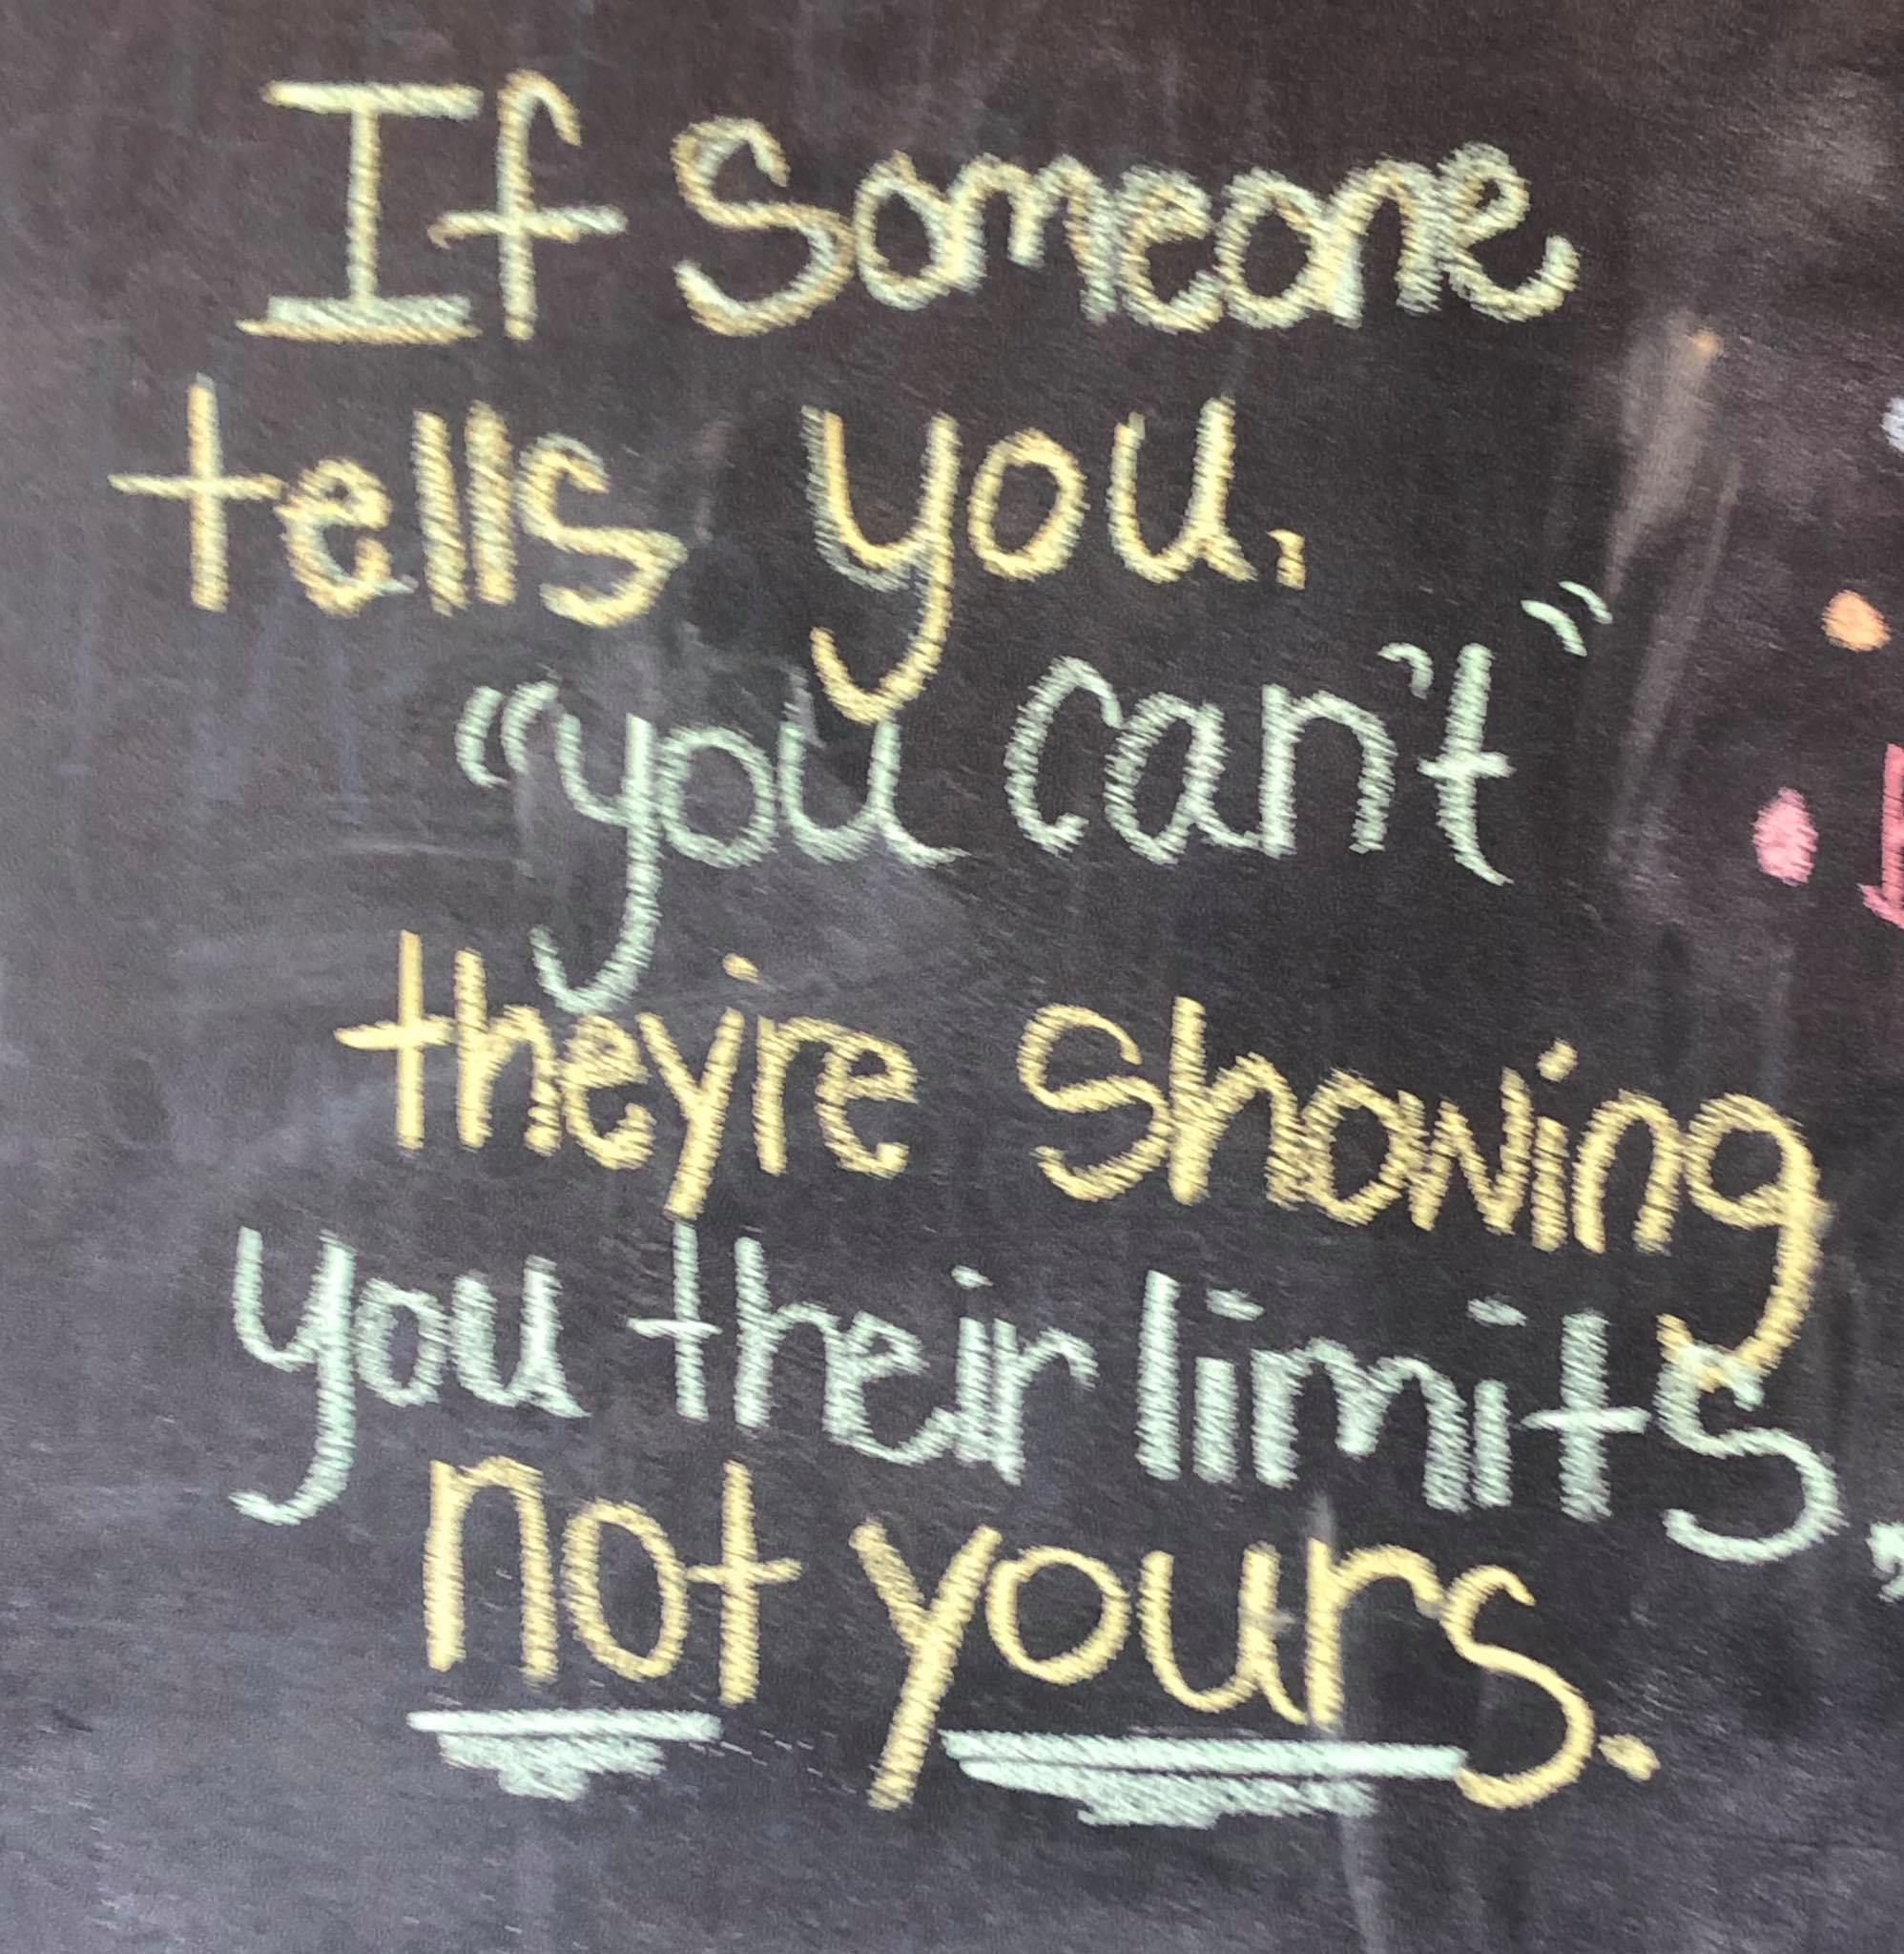 If Someone
tells you,
"you can't"
they're showing
you their limits,
not yours.